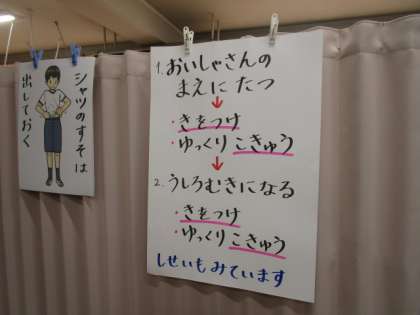 シャツのすそは
出しておく
1. おいしゃさんの
まえに たつ
・きをつけ
・ゆっくり こきゅう
2. うしろむきになる
・きをつけ
・ゆっくり こきゅう
しせいも みています